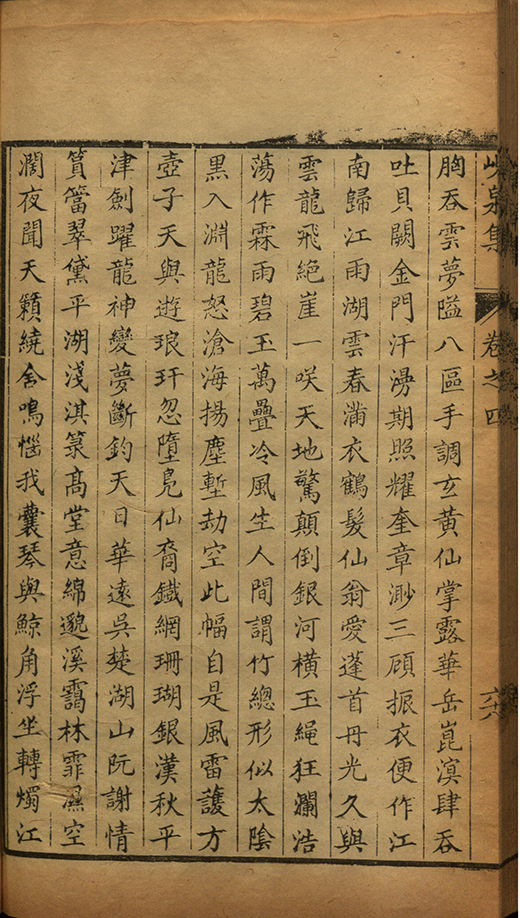 峴泉集 卷之四 六六
胸吞雲夢隘八區手調玄黃仙掌露華岳崑溟肆吞
吐貝闕金門汗漫期照耀奎章渺三顧振衣便作江
南歸江雨湖雲春滿衣鶴髮仙翁愛蓬首丹光久與
雲龍飛絶崖一咲天地驚顛倒銀河橫玉繩狂瀾浩
蕩作霖雨碧玉萬疊冷風生人間謂竹總形似太陰
黑入淵龍怒滄海揚塵塹劫空此幅自是風雷護方
壺子天與遊琅玕忽墮鳧仙裔鐵網珊瑚銀漢秋平
津劍躍龍神變夢斷鈞天日華遠吳楚湖山阮謝情
篔簹翠黛平湖淺淇菉髙堂意綿邈溪靄林霏濕空
濶夜聞天籟繞舍鳴惱我囊琴與鯨角浮坐轉燭江